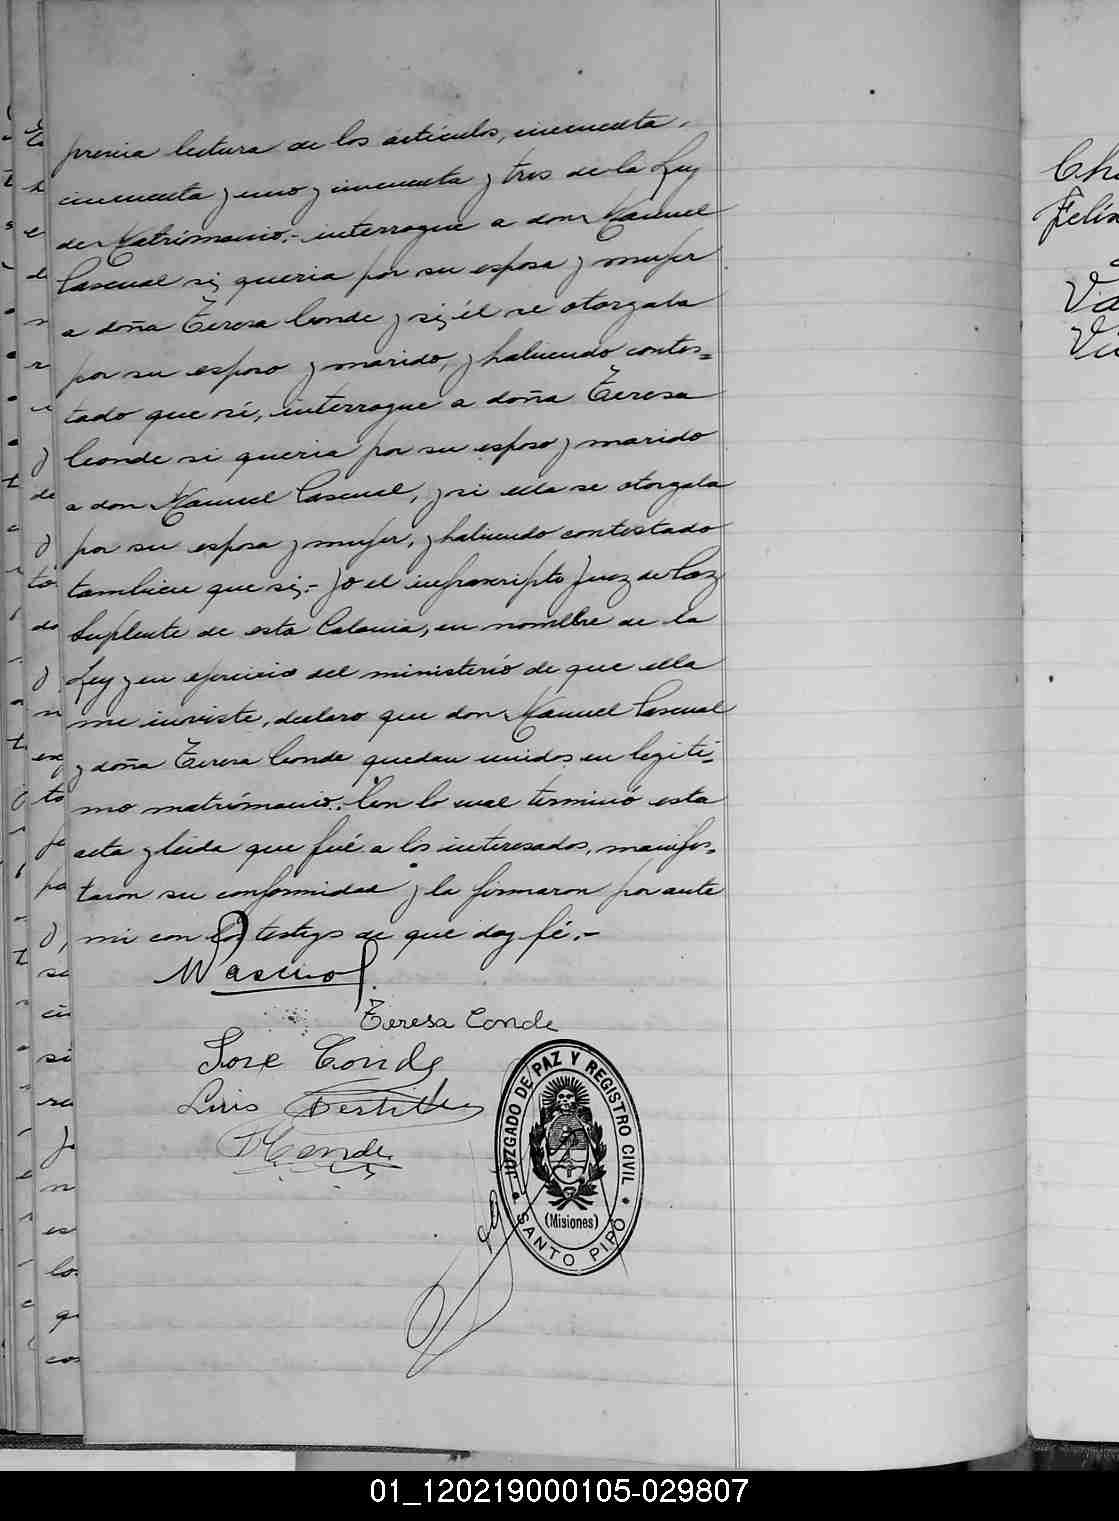 previa lectura de los artículos, cincuenta,
cincuenta y uno y cincuenta y tres de la Ley
de Matrimonio.- interrogue a don Manuel
Pascual si queria por su esposa y mujer
a doña Teresa Conde y si él se otorgaba
por su esposo y marido, y habiendo contes=
tado que sí, interrogue a doña Teresa
Conde si queria por su esposo y marido
a don Manuel Pascual, y si ella se otorgaba
por su esposa y mujer, y habiendo contestado
tambien que si.- yo el infrascripto Juez de Paz
Suplente de esta Colonia, en nombre de la
Ley y en ejercicio del ministerio de que ella
me inviste, declaro que don Manuel Pascual
y doña Teresa Conde quedan unidos en legiti=
mo matrimonio. Con lo cual terminó esta
acta y leida que fué a los interesados, manifes=
taron su conformidad y la firmaron por ante
mi con los testigos de que doy fé.-
MPascual
Teresa Conde
Jose Conde
Luis
Conde
JUZGADO DE PAZ Y REGISTRO CIVIL
(Misiones)
SANTO PIPÓ
01_120219000105-029807